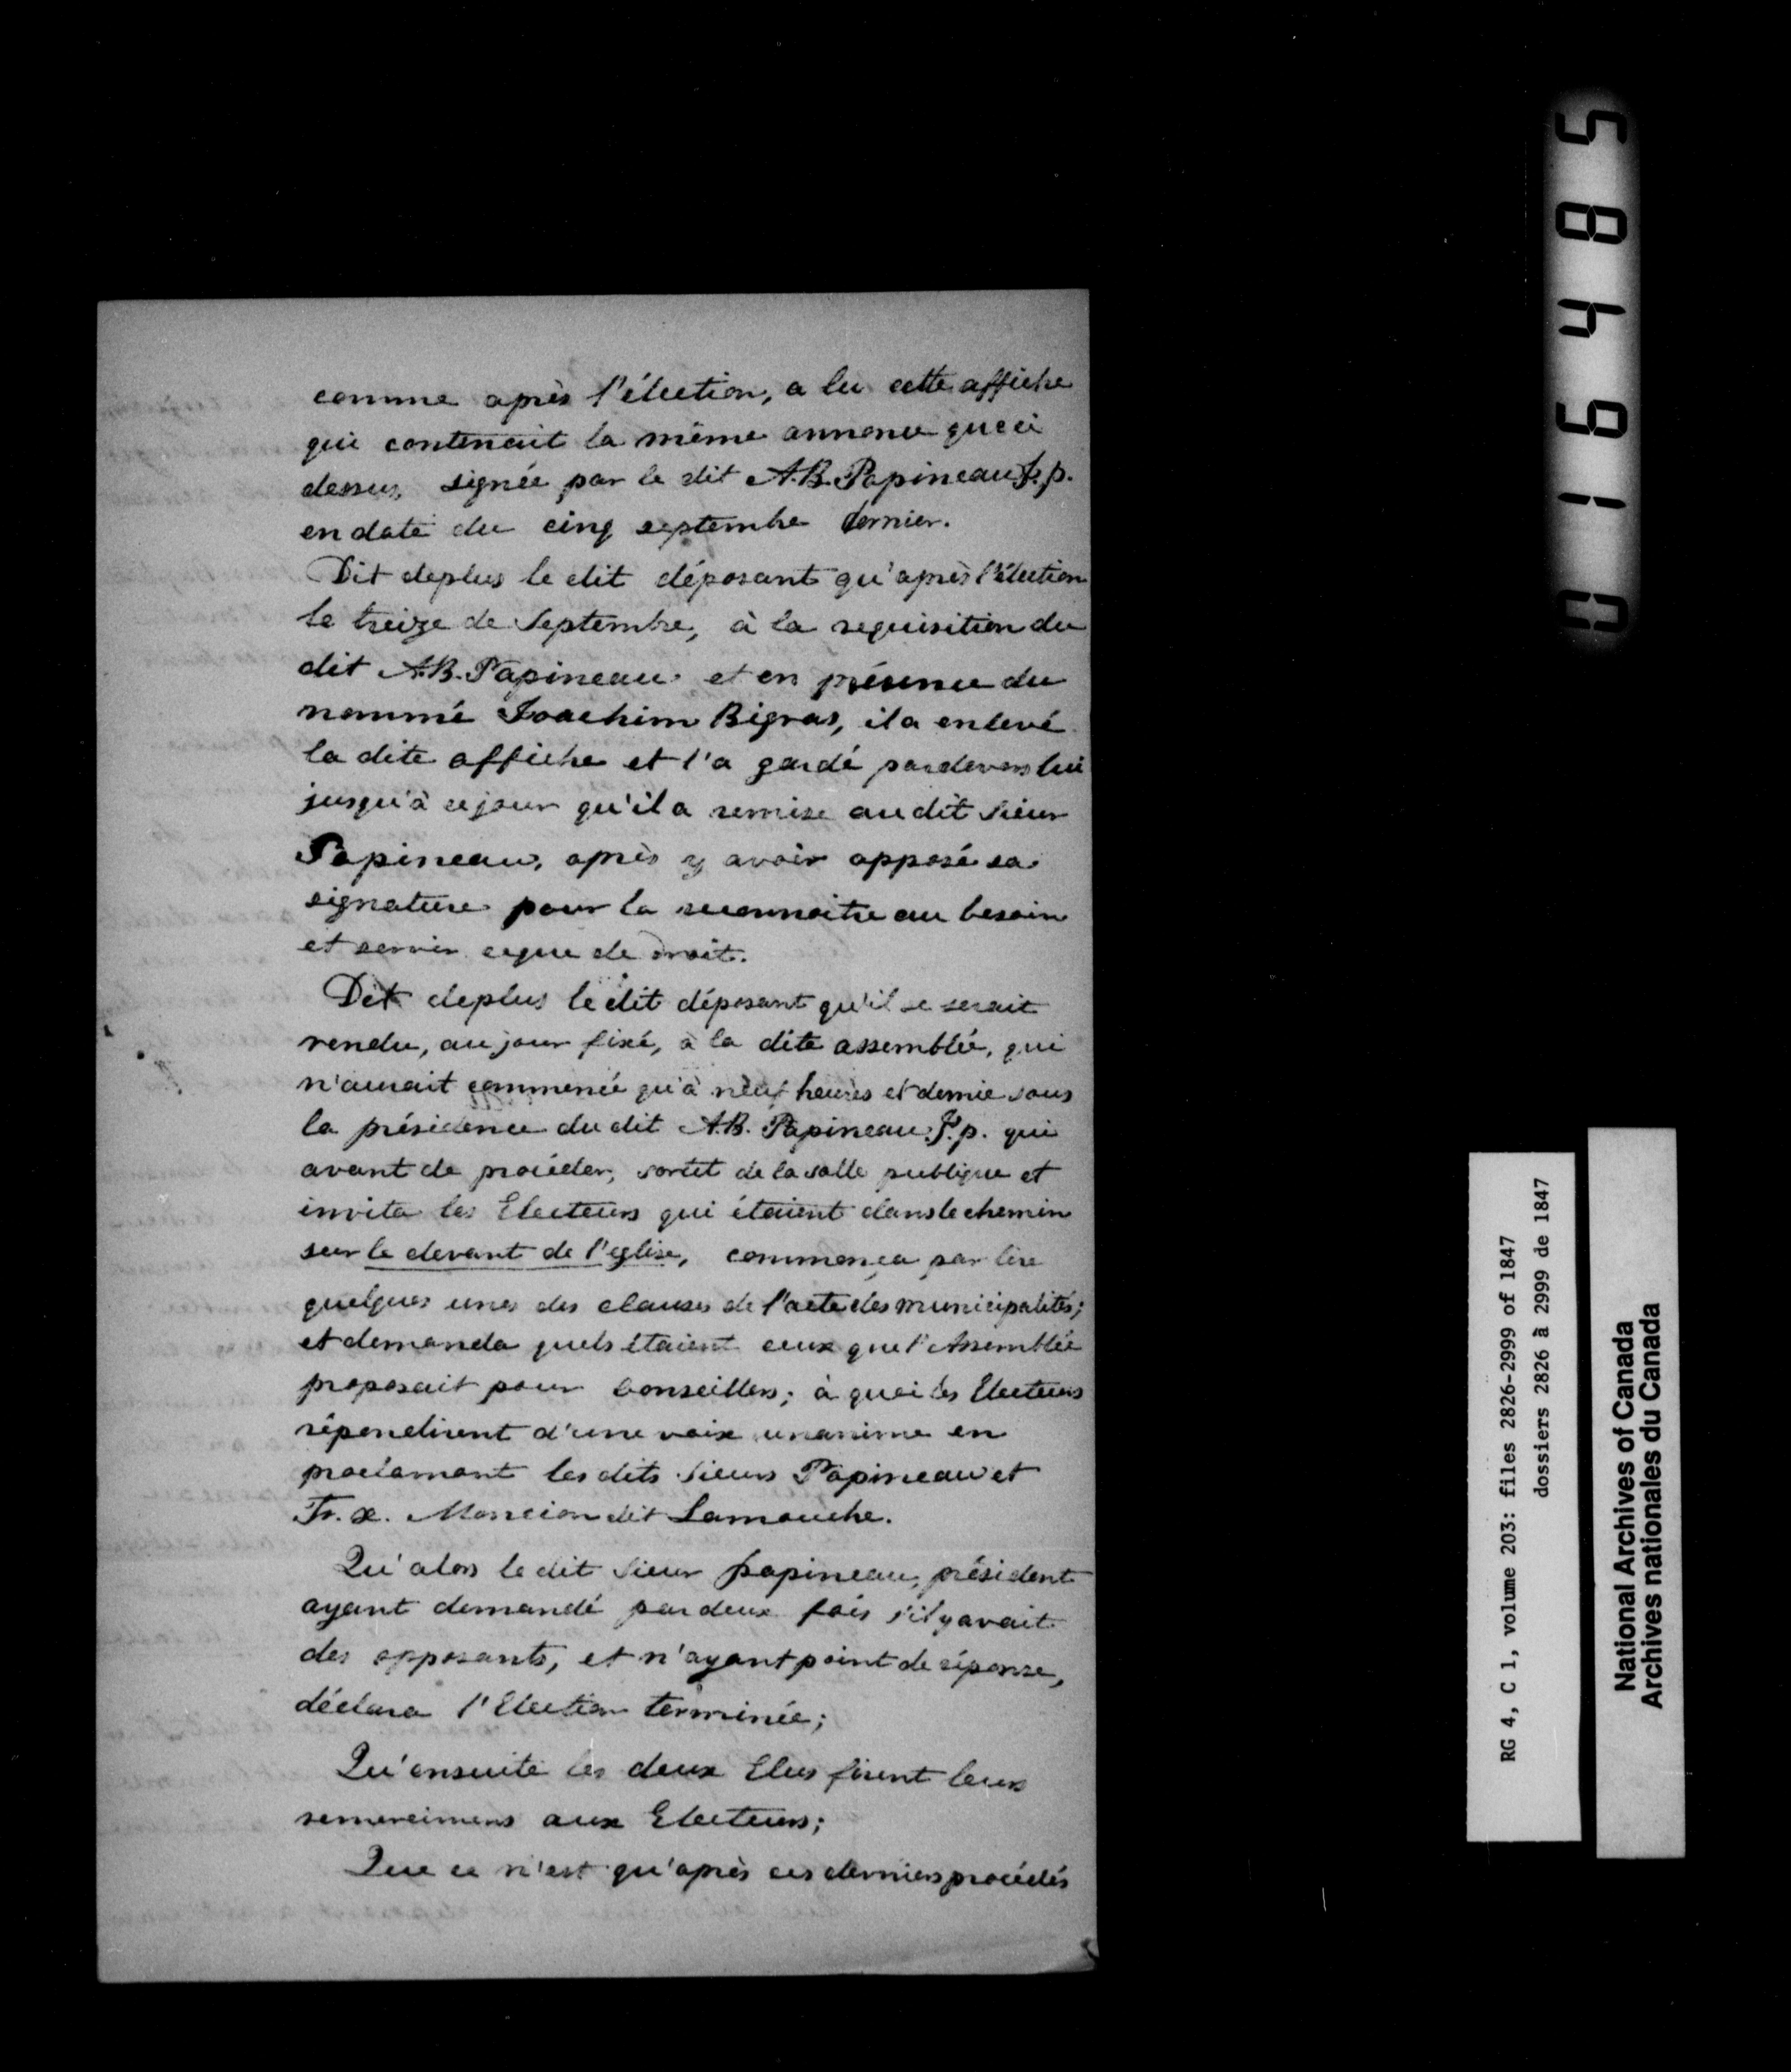 comme après l'élection, a lu cette affiche
qui contenait la même annonce que ci
dessus, signée par le dit A.B. Papineau J.p.
en date du cinq septembre dernier.
Dit deplus le dit déposant qu'après l'élection
le treize de Septembre, à la requisition du
dit A.B. Papineau et en présence du
nommé Joachim Bigras, il a enlevé
la dite affiche et l'a gardé pardevers lui
jusqu'à ce jour qu'il a remise au dit Sieur
Papineau, après y avoir apposé sa
signature pour la reconnaitre au besoin
et servir ce que de droit.
Dit deplus le dit déposant qu'il se serait
rendu, au jour fixé, à la dite assemblée, qui
n'aurait commencé qu'à neuf heures et demie sous
la présidence du dit A.B. Papineau J.p. qui
avant de procéder, sortit de la salle publique et
invita les Electeurs qui étaient dans le chemin
sur le devant de l'eglise, commença par lire
quelques unes des clauses de l'acte des municipalités;
et demanda quels étaient ceux que l'Assemblée
proposait pour Conseillers; à quoi les Electeurs
répondirent d'une voix unanime en
proclamant les dits Sieurs Papineau et
Fr. x. Moncion dit Lamouche.
Qu'alors le dit Sieur papineau, président
ayant demandé par deux fois s'il y avait
des opposants, et n'ayant point de réponse,
déclara l'Election terminée;
Qu'ensuite les deux Elus firent leurs
remercimens aux Electeurs;
Que ce n'est qu'après ces derniers procédés
016485
RG 4, C 1, volume 203: files 2826-2999 of 1847
dossiers 2826 à 2999 de 1847
National Archives of Canada
Archives nationales du Canada